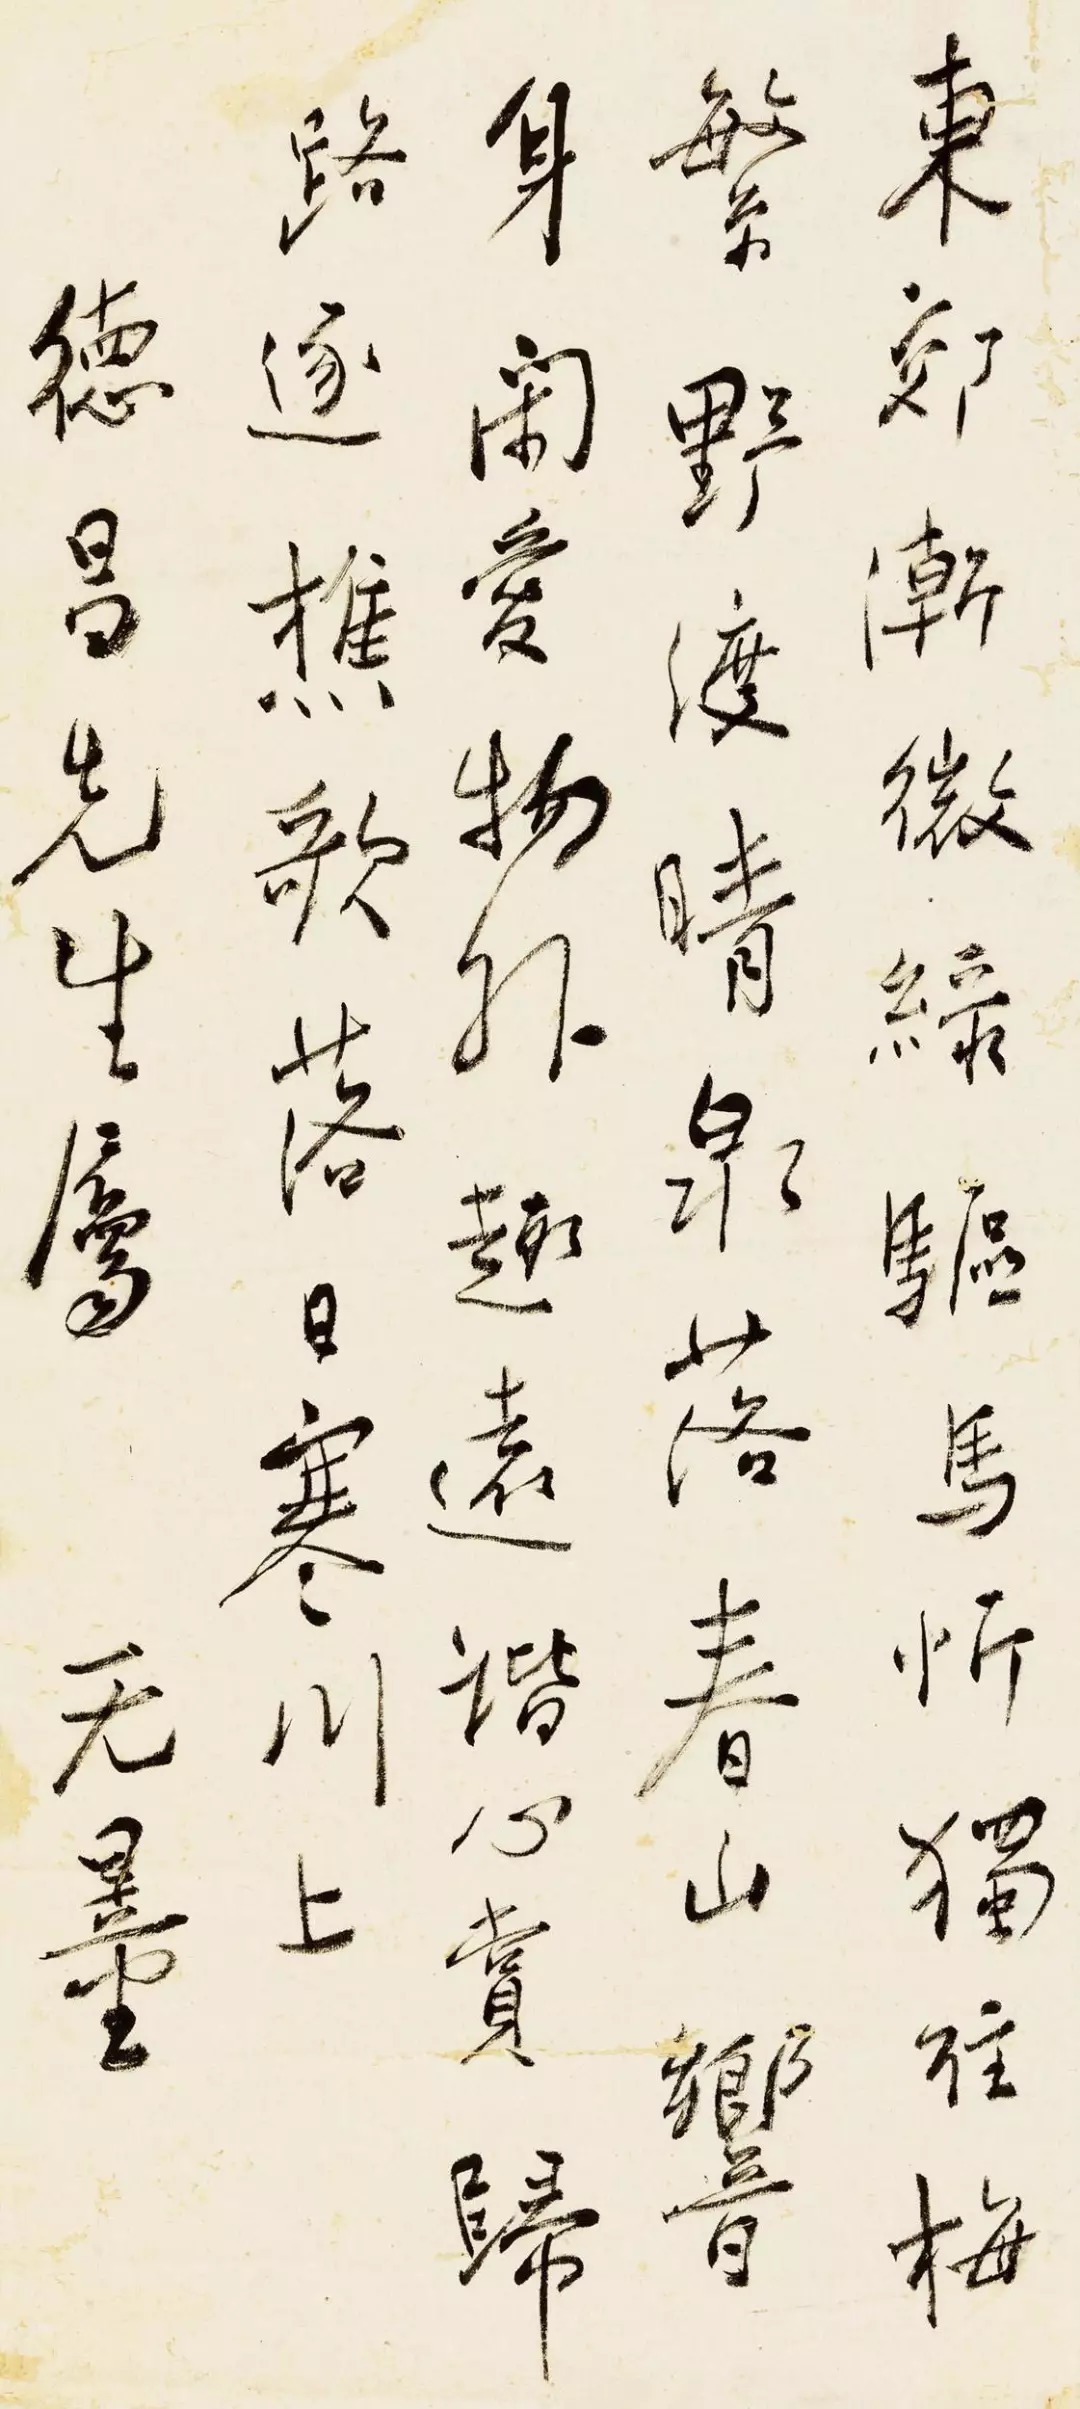 東郊漸微綠驅馬忻獨往梅
繁野渡晴泉落春山響
身閑愛物外趣遠諧心賞歸
路逐樵歌落日寒川上
德昌先生屬 无量